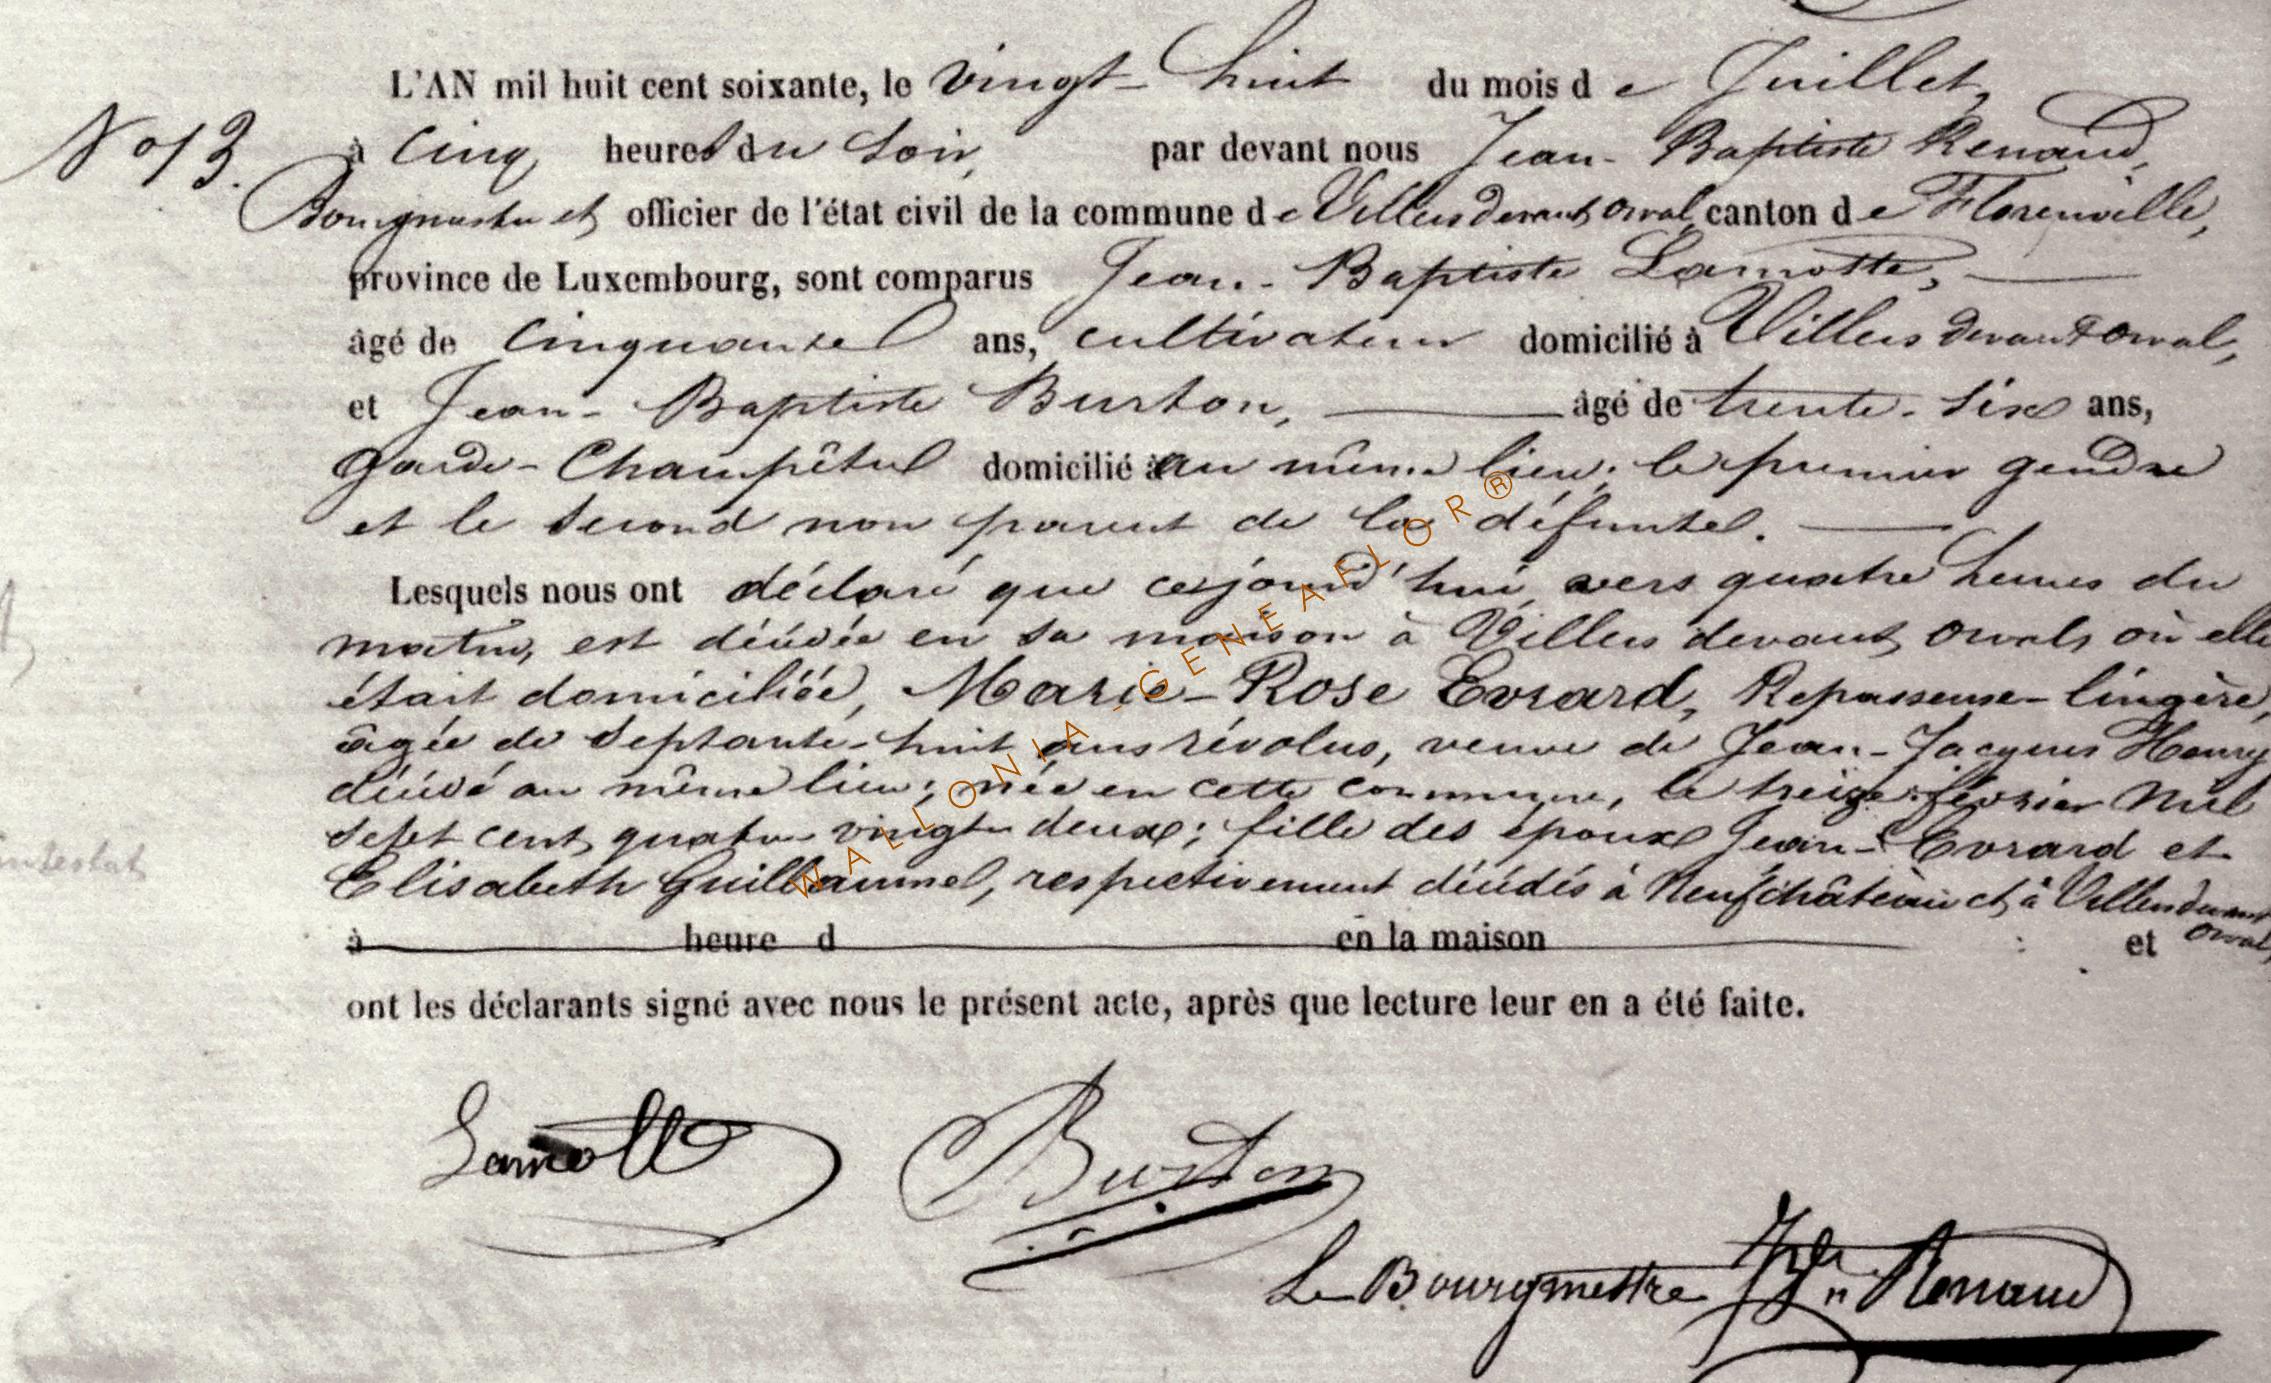 L'AN mil huit cent soixante, le vingt-huit du mois de Juillet,
No 13.
à cinq heures du soir, par devant nous Jean-Baptiste Renaud,
Bourgmestre et officier de l'état civil de la commune de Villers devant Orval, canton de Florenville,
province de Luxembourg, sont comparus Jean-Baptiste Lamotte,
âgé de cinquante ans, cultivateur domicilié à Villers devant Orval,
et Jean-Baptiste Burton, âgé de trente-six ans,
garde-Champêtre domicilié au même lieu; le premier gendre
et le second non parent de la défunte.
Lesquels nous ont déclaré que cejourd'hui, vers quatre heures du
matin, est décédée en sa maison à Villers devant Orval, où elle
était domiciliée, Marie-Rose Evrard, Repasseuse-lingère,
âgée de septante-huit ans révolus, veuve de Jean-Jacques Henry
décédé au même lieu; née en cette commune, le treize février mil
sept cent quatre vingt deux; fille des époux Jean-Evrard et
Elisabeth Guillaume, respectivement décédés à Neufchâteau et à Villers devant
Orval,
à heure d en la maison et
ont les déclarants signé avec nous le présent acte, après que lecture leur en a été faite.
Lamotte
Burton
Le Bourgmestre Renaud
intestat
WALLONIA-GENEAFLOR®